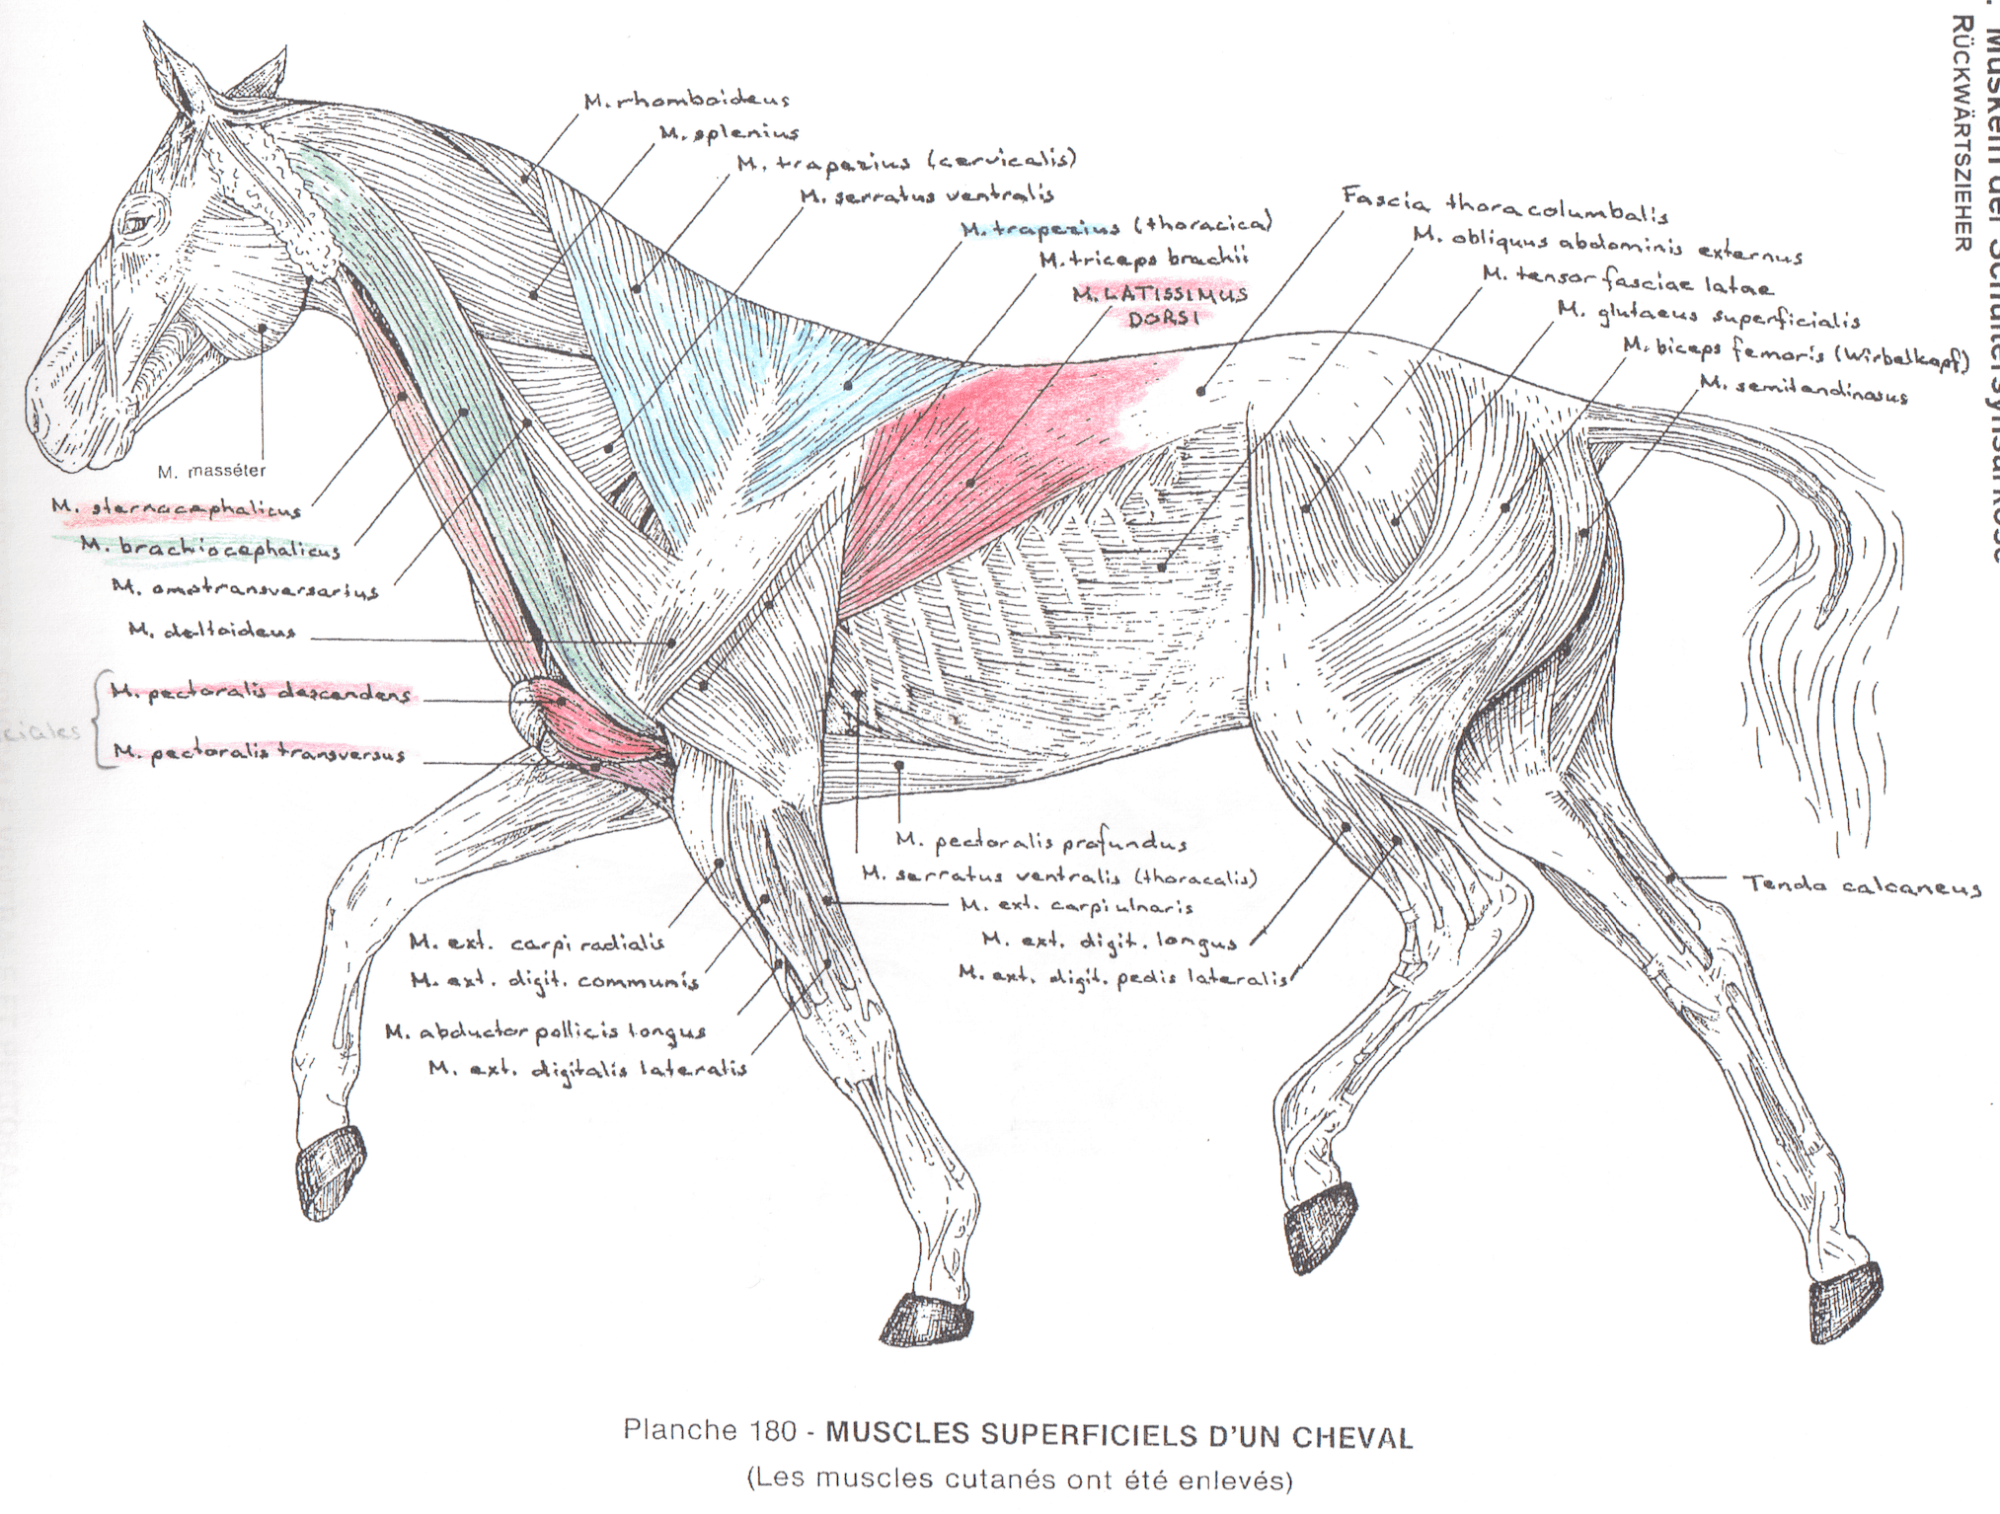 M. rhomboideus
M. splenius
M. trapezius (cervicalis)
M. serratus ventralis
M. trapezius (thoracica)
M. triceps brachii
M. LATISSIMUS
DORSI
Fascia thoracolumbalis
M. obliquus abdominis externus
M. tensor fasciae latae
M. glutaeus superficialis
M. biceps femoris (Wirbelkopf)
M. semitendinosus
RÜCKWÄRTSZIEHER
Muskeln der Schultersynsarkose
M. masséter
M. sternocephalicus
M. brachiocephalicus
M. omotransversarius
M. deltoideus
M. pectoralis descendens
ciales
M. pectoralis transversus
M. pectoralis profundus
M. serratus ventralis (thoracalis)
M. ext. carpi ulnaris
M. ext. digit. longus
M. ext. digit. pedis lateralis
Tendo calcaneus
M. ext. carpi radialis
M. ext. digit. communis
M. abductor pollicis longus
M. ext. digitalis lateralis
Planche 180 - MUSCLES SUPERFICIELS D'UN CHEVAL
(Les muscles cutanés ont été enlevés)